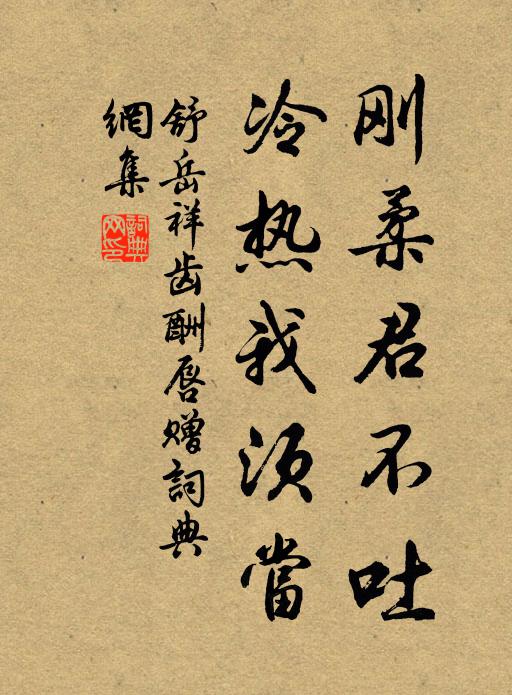 刚柔君不吐
冷热我须當
舒岳祥齿酬唇赠詞典
網集
詞典
网印